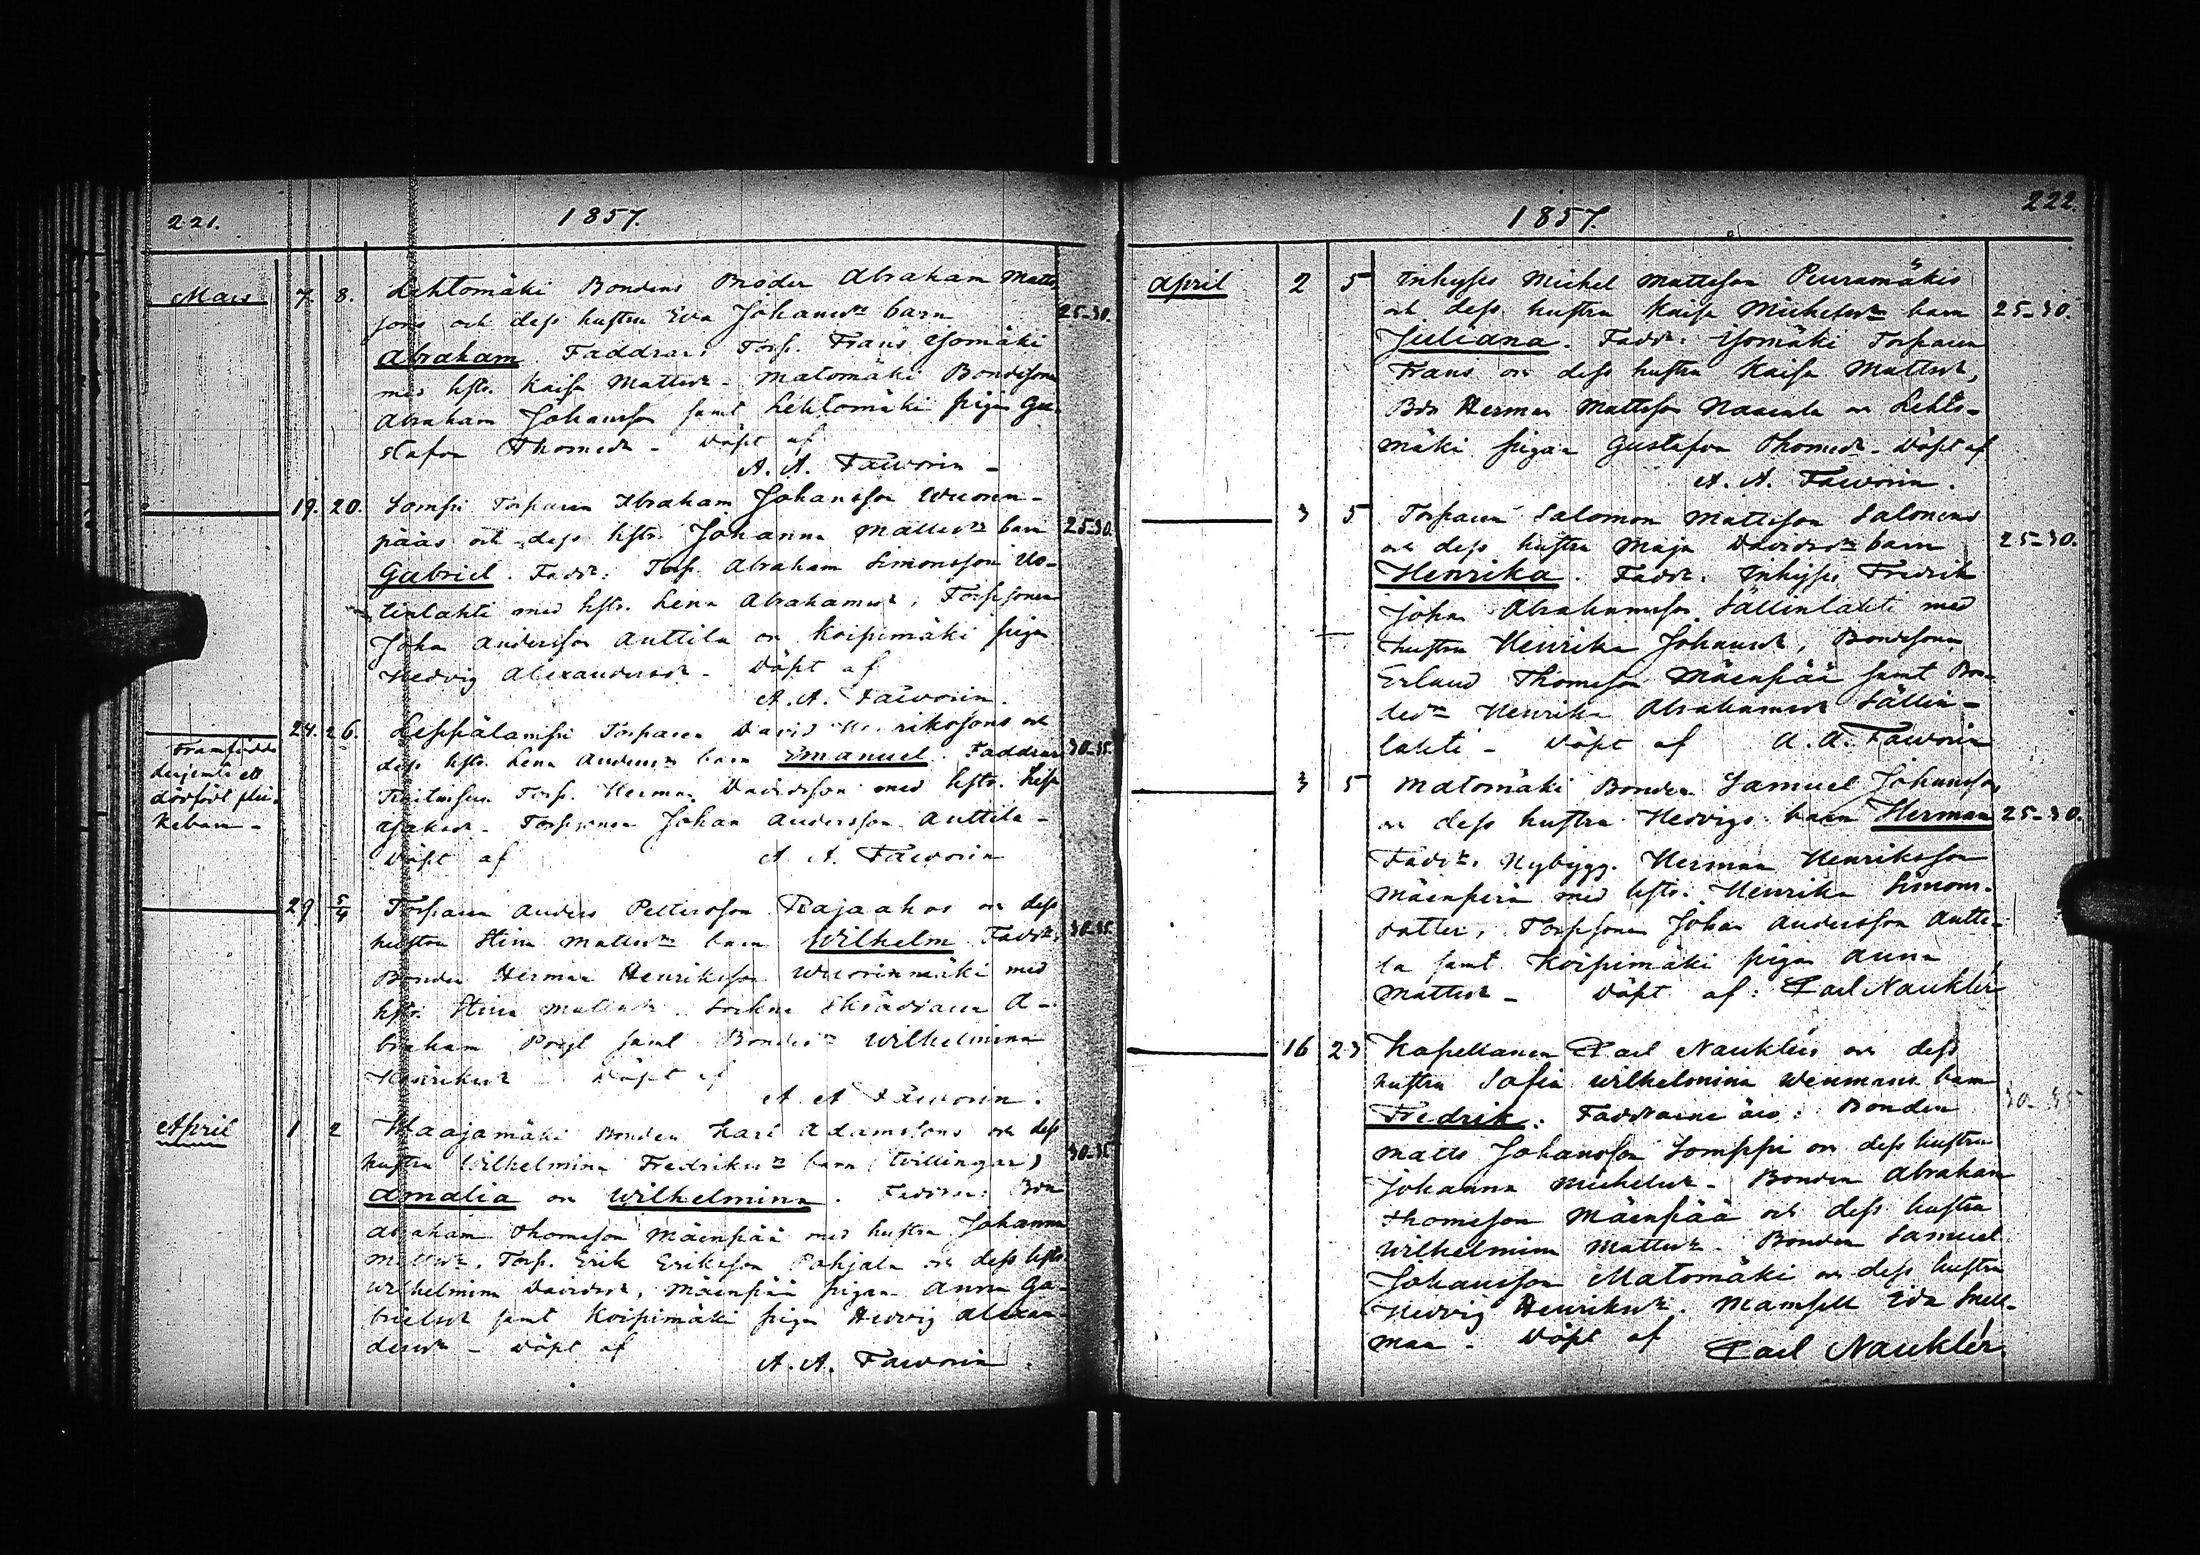 221.
1857.
Mars 7. 8. Lehtomäki Bondens Broder Abraham Matts
sons och dess hustru Eva Johansdr barn 25-30.
Abraham. Faddrar: Torp. Frans Isomäki
med hstr. Kaisa Mattsdr - Matomäki Bondeson
Abraham Johansson samt Lehtomäki pigan Gu-
stafva Thomasdr - Döpt af
A. A. Faworin -
19. 20. Lomsi Torparen Abraham Johansson Wuoren-
pääs och dess hstr. Johanna Mattsdr barn 25-30.
Gabriel. Faddr: Torp. Abraham Simonsson
tinlahti med hstr. Lena Abrahamsdr, Torpsonen
Johan Andersson Anttila och Koipimäki pigan
Hedvig Alexandersdr - Döpt af
A. A. Faworin.
24. 26. Leppälampi Torparen David Henrikssons och
dess hstr. Lena Andersdr barn Emanuel. Faddrar 30-35.
Torp. Herman Davidsson med hstr. Lisa
Torpsonen Johan Andersson Anttila -
Döpt af A. A. Faworin
Framfödde
ett
dödfödt flic-
kebarn -
29 5/4 Torparen Anders Pettersson Rajaahos och dess
hustru Stina Mattsdr barn Wilhelm. Faddr. 30-35.
Bonden Herman Henriksson Wuorinmäki med
hstr. Stina Sockne Skräddaren A-
braham samt Bondedr Wilhelmina
Henriksdr Döpt af
A. A. Faworin.
April 1 2 Haajamäki Bonden Karl Adamssons och dess
hustru Wilhelmina Fredriksdr barn (tvillingar) 30-35
Amalia och Wilhelmina. Faddrar: Bdn
Abraham Thomasson Mäenpää med hustru Johanna
Mattsdr, Torp. Erik Eriksson Pohjala och dess hstr.
Wilhelmina Davidsdr, Mäenpää pigan Anna Ga-
brielsdr samt Koipimäki pigan Hedvig Alexan-
dersdr - Döpt af
A. A. Faworin.
222.
1857.
April 2 5 Inhyses Michel Mattsson Puuramäkis
och dess hustru Kaisa Michelsdr barn 25-30.
Juliana. Faddr: Isomäki Torparen
Frans och dess hustru Kaisa Mattsdr,
Bdn Herman Mattsson och Lehto-
mäki pigan Gustafva Thomasdr - Döpt af
A. A. Faworin.
3 5 Torparen Salomon Mattsson Salonens
och dess hustru Maja Davidsdr barn 25-30.
Henrika. Faddr: Inhyses Fredrik
Johan Abrahamsson Sällinlahti med
hustru Henrika Johansdr, Bondesonen
Erland Thomasson Mäenpää samt Bon-
dedr Henrika Abrahamsdr Sällin-
lahti - Döpt af A. A. Faworin
3 5 Matomäki Bonden Samuel Johansson
och dess hustru Hedvigs barn Herman 25-30.
Faddr: Nybygg. Herman Henriksson
Mäenperä med hstr. Henrika Simons-
dotter, Torpsonen Johan Andersson Antti-
la samt Koipimäki pigan Anna
Mattsdr - Döpt af: Carl Nauklér
16 23 Kapellanen Carl Nauklérs och dess
hustru Sofia Wilhelmina Wenmans barn
Fredrik. Faddrarne äro: Bonden 30-35
Matts Johansson Somppi och dess hustru
Johanna Michelsdr - Bonden Abraham
Thomasson Mäenpää och dess hustru
Wilhelmina Mattsdr - Bonden Samuel
Johansson Matomäki och dess hustru
Hedvig Henriksdr. Mamsell Eva Snell-
man - Döpt af Carl Nauklér